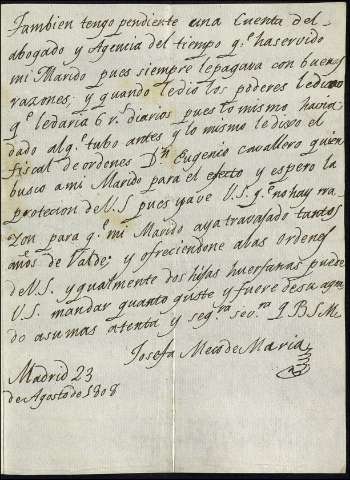 Tambien tengo pendiente una Cuenta del
abogado y Agencia del tiempo q.e haservido
mi Marido pues siempre lepagava con buenas
razones; y quando ledio los poderes le dixo
q.e ledaria 6 r.s diarios pues lo mismo havia
dado al q.e tubo antes y lo mismo le dixo el
fiscal de ordenes D.n Eugenio cavallero quien
busco a mi Marido para el efecto y espero la
protecion de V.S pues ya ve V.S. q.e no hay rra-
zon para q.e mi Marido aya travajado tantos
años de Valde; y ofreciendone alas Ordenes
de V.S. y gualmente dos hijas huerfanas puede
V.S. mandar quanto guste y fuere desa agra-
do asumas atenta y seg.ra sev.ra Q B S M
Josefa Meco de Maria
Madrid 23
de Agosto de 1808